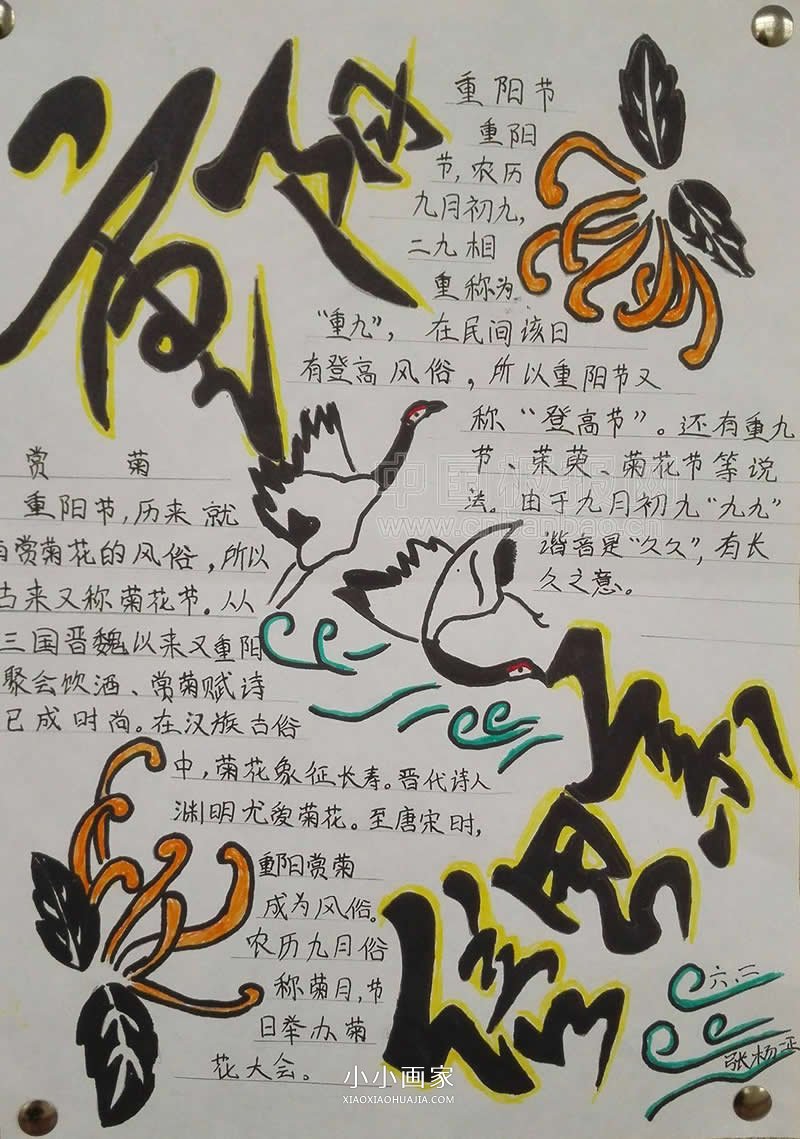 重阳
重阳节
重阳
节,农历
九月初九,
二九相
重称为
“重九”,在民间该日
有登高风俗,所以重阳节又
称“登高节”。还有重九
节、茱萸、菊花节等说
法。由于九月初九“九九”
谐音是“久久”,有长
久之意。
赏 菊
重阳节,历来就
有赏菊花的风俗,所以
古来又称菊花节。从
三国晋魏以来又重阳
聚会饮酒、赏菊赋诗
已成时尚。在汉族古俗
中,菊花象征长寿。晋代诗人
渊明尤爱菊花。至唐宋时,
重阳赏菊
成为风俗。
农历九月俗
称菊月,节
日举办菊
花大会。
六.二
张杨
中国板报网
www.cnbanbao.cn
小小画家
XIAOXIAOHUAJIA.COM